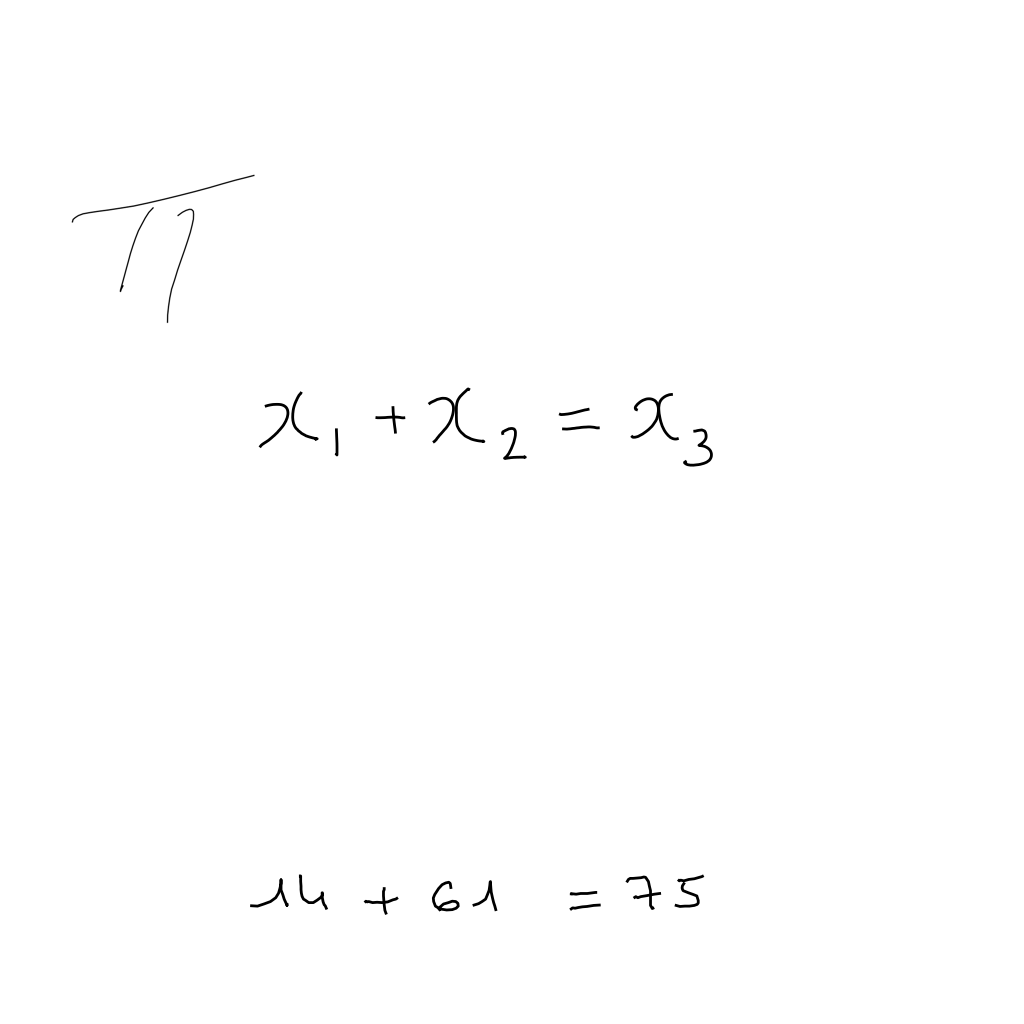 π
x₁ + x₂ = x₃
14 + 61 = 75